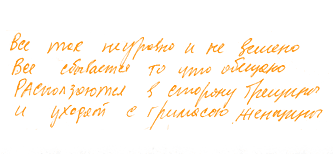 Все так неуровно и не вешено
Все сбывается то что обещано
Расползаются в сторону трещины
и уходят с гримасою женщины